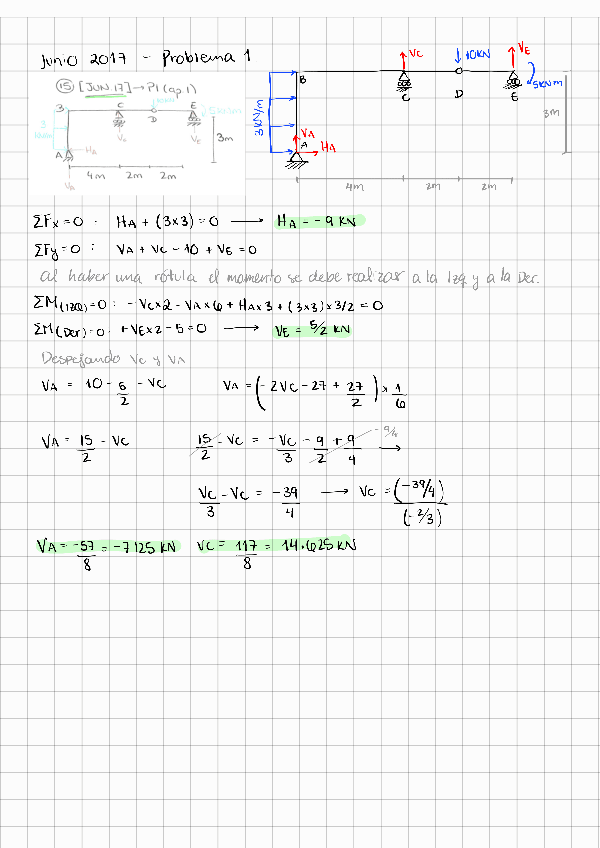 Junio 2017 - Problema 1
15 [JUN.17] → P1 (ap.1)
10KN
VC
10KN
VE
B
C
D
E
5KNm
3KN/m
3m
VA
A
HA
4m
2m
2m
3
C
D
E
3
A
HA
VA
VE
3m
4m
2m
2m
VA
ΣFx = 0 : HA + (3x3) = 0 → HA = -9 KN
ΣFy = 0 : VA + VC - 10 + VE = 0
Al haber una rótula el momento se debe realizar a la Izq y a la Der.
ΣM(IZQ) = 0 : -VCx2 - VAx6 + HAx3 + (3x3)x3/2 = 0
ΣM(Der) = 0 : +VEx2 - 5 = 0 → VE = 5/2 KN
Despejando VC y VA
VA = 10 - 5/2 - VC VA = (-2VC - 27 + 27/2) x 1/6
VA = 15/2 - VC 15/2 - VC = -VC/3 - 9/2 + 9/4 → -9/4
VC/3 - VC = -39/4 → VC = (-39/4)/(-2/3)
VA = -57/8 = -7125 KN VC = 117/8 = 14.625 KN